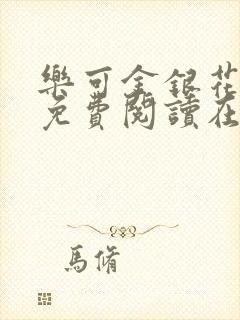 樂可金銀花
免費閱讀在
馬脩